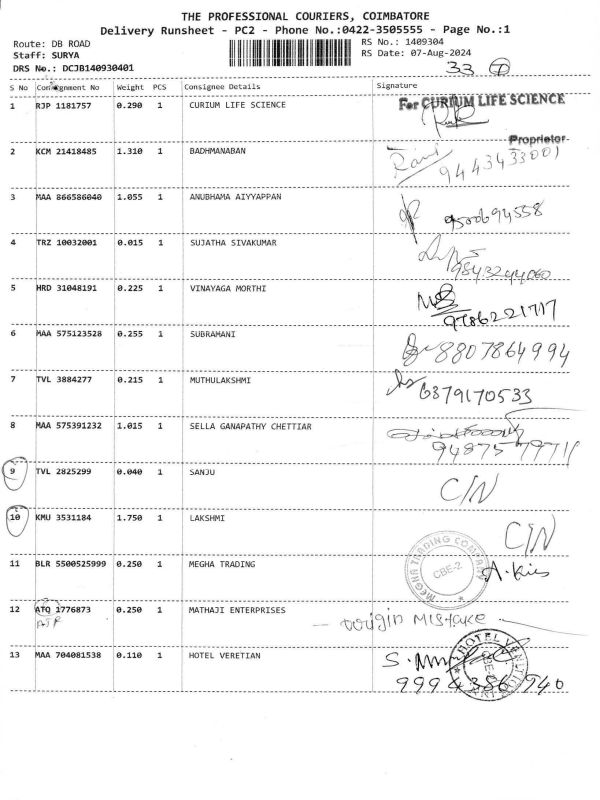 THE PROFESSIONAL COURIERS, COIMBATORE
Delivery Runsheet - PC2 - Phone No.:0422-3505555 - Page No.:1
Route: DB ROAD RS No.: 1409304
Staff: SURYA RS Date: 07-Aug-2024
DRS No.: DCJB140930401 33
S No Consignment No Weight PCS Consignee Details Signature
1 RJP 1181757 0.290 1 CURIUM LIFE SCIENCE For CURIUM LIFE SCIENCE
Proprietor
2 KCM 21418485 1.310 1 BADHMANABAN Ravi
9443433001
3 MAA 866586040 1.055 1 ANUBHAMA AIYYAPPAN
9500694558
4 TRZ 10032001 0.015 1 SUJATHA SIVAKUMAR
5 HRD 31048191 0.225 1 VINAYAGA MORTHI
9786221717
6 MAA 575123528 0.255 1 SUBRAMANI 8807864994
7 TVL 3884277 0.215 1 MUTHULAKSHMI 6379170533
8 MAA 575391232 1.015 1 SELLA GANAPATHY CHETTIAR
9 TVL 2825299 0.040 1 SANJU C/N
10 KMU 3531184 1.750 1 LAKSHMI C/N
11 BLR 5500525999 0.250 1 MEGHA TRADING MEGHA TRADING COMPANY CBE-2
12 ATQ 1776873 0.250 1 MATHAJI ENTERPRISES origin Mistake
13 MAA 704081538 0.110 1 HOTEL VERETIAN HOTEL
9994386940